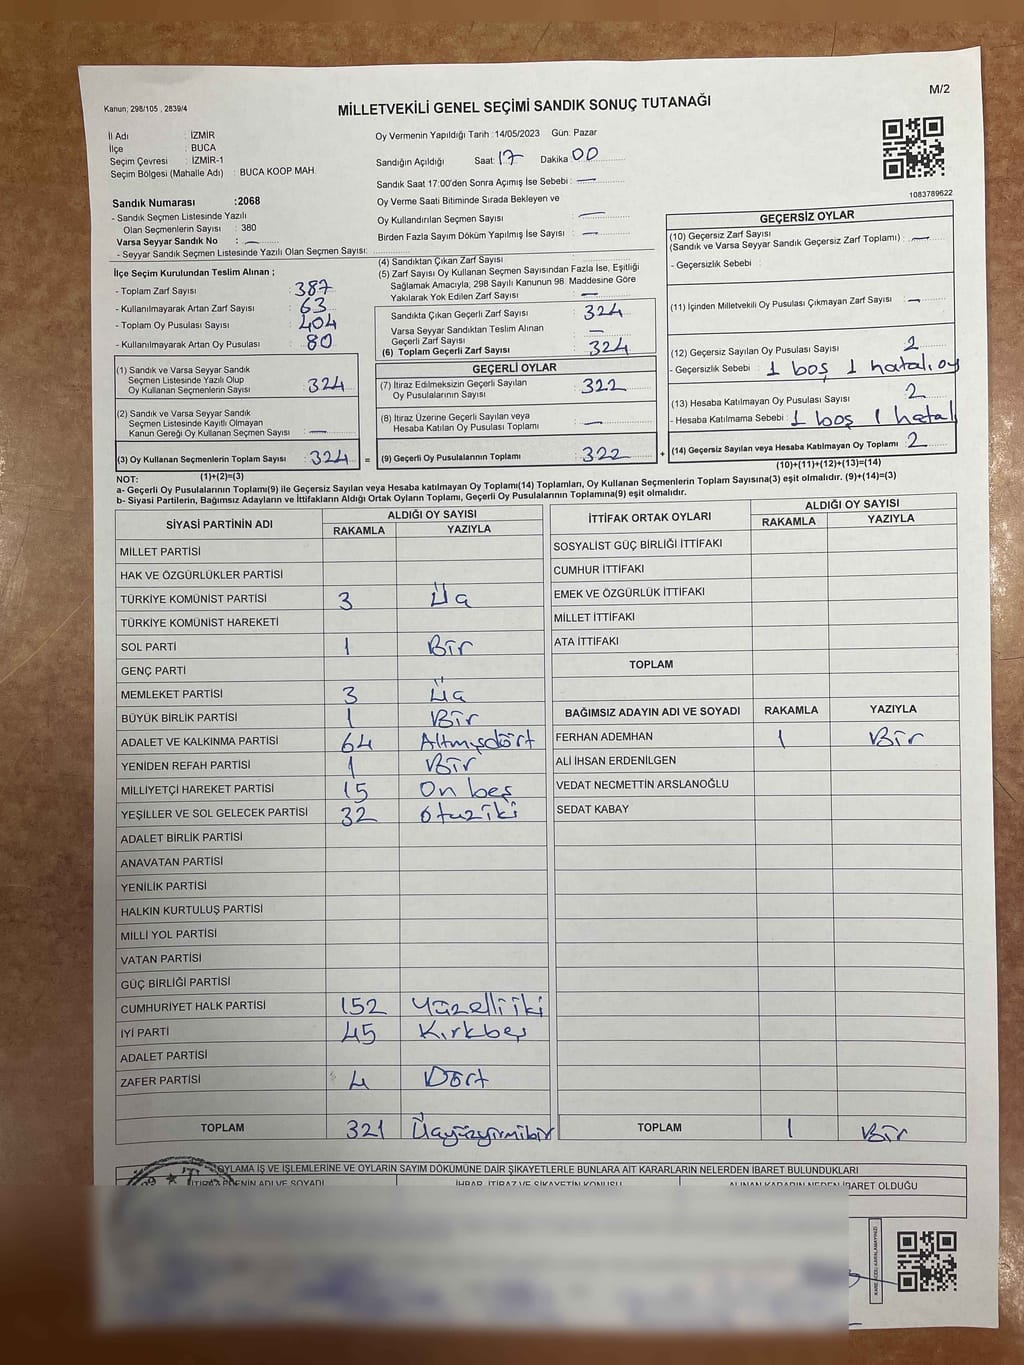 M/2
Kanun; 298/105 , 2839/4
MİLLETVEKİLİ GENEL SEÇİMİ SANDIK SONUÇ TUTANAĞI
İl Adı : İZMİR
İlçe : BUCA
Seçim Çevresi : İZMİR-1
Seçim Bölgesi (Mahalle Adı) : BUCA KOOP MAH.
Sandık Numarası :2068
- Sandık Seçmen Listesinde Yazılı
Olan Seçmenlerin Sayısı : 380
Varsa Seyyar Sandık No : —
- Seyyar Sandık Seçmen Listesinde Yazılı Olan Seçmen Sayısı:
Oy Vermenin Yapıldığı Tarih :14/05/2023 Gün: Pazar
Sandığın Açıldığı Saat: 17 Dakika 00
Sandık Saat 17:00'den Sonra Açımış İse Sebebi : —
Oy Verme Saati Bitiminde Sırada Bekleyen ve
Oy Kullandırılan Seçmen Sayısı : —
Birden Fazla Sayım Döküm Yapılmış İse Sayısı : —
1083789622
İlçe Seçim Kurulundan Teslim Alınan ;
- Toplam Zarf Sayısı : 387
- Kullanılmayarak Artan Zarf Sayısı : 63
- Toplam Oy Pusulası Sayısı : 404
- Kullanılmayarak Artan Oy Pusulası : 80
(1) Sandık ve Varsa Seyyar Sandık
Seçmen Listesinde Yazılı Olup
Oy Kullanan Seçmenlerin Sayısı : 324
(2) Sandık ve Varsa Seyyar Sandık
Seçmen Listesinde Kayıtlı Olmayan
Kanun Gereği Oy Kullanan Seçmen Sayısı : —
(3) Oy Kullanan Seçmenlerin Toplam Sayısı : 324 =
(1)+(2)=(3)
(4) Sandıktan Çıkan Zarf Sayısı :
(5) Zarf Sayısı Oy Kullanan Seçmen Sayısından Fazla İse, Eşitliği
Sağlamak Amacıyla; 298 Sayılı Kanunun 98. Maddesine Göre
Yakılarak Yok Edilen Zarf Sayısı : —
Sandıkta Çıkan Geçerli Zarf Sayısı : 324
Varsa Seyyar Sandıktan Teslim Alınan
Geçerli Zarf Sayısı : —
(6) Toplam Geçerli Zarf Sayısı : 324
GEÇERLİ OYLAR
(7) İtiraz Edilmeksizin Geçerli Sayılan
Oy Pusulalarının Sayısı : 322
(8) İtiraz Üzerine Geçerli Sayılan veya
Hesaba Katılan Oy Pusulası Toplamı : —
(9) Geçerli Oy Pusulalarının Toplamı : 322 +
GEÇERSİZ OYLAR
(10) Geçersiz Zarf Sayısı
(Sandık ve Varsa Seyyar Sandık Geçersiz Zarf Toplamı) : —
- Geçersizlik Sebebi :
(11) İçinden Milletvekili Oy Pusulası Çıkmayan Zarf Sayısı : —
(12) Geçersiz Sayılan Oy Pusulası Sayısı : 2
- Geçersizlik Sebebi : 1 boş 1 hatalı oy
(13) Hesaba Katılmayan Oy Pusulası Sayısı : 2
- Hesaba Katılmama Sebebi : 1 boş 1 hatal
(14) Geçersiz Sayılan veya Hesaba Katılmayan Oy Toplamı : 2
(10)+(11)+(12)+(13)=(14)
NOT:
a- Geçerli Oy Pusulalarının Toplamı(9) ile Geçersiz Sayılan veya Hesaba katılmayan Oy Toplamı(14) Toplamları, Oy Kullanan Seçmenlerin Toplam Sayısına(3) eşit olmalıdır. (9)+(14)=(3)
b- Siyasi Partilerin, Bağımsız Adayların ve İttifakların Aldığı Ortak Oyların Toplamı, Geçerli Oy Pusulalarının Toplamına(9) eşit olmalıdır.
SİYASİ PARTİNİN ADI ALDIĞI OY SAYISI
RAKAMLA YAZIYLA
MİLLET PARTİSİ
HAK VE ÖZGÜRLÜKLER PARTİSİ
TÜRKİYE KOMÜNİST PARTİSİ 3 Üç
TÜRKİYE KOMÜNİST HAREKETİ
SOL PARTİ 1 Bir
GENÇ PARTİ
MEMLEKET PARTİSİ 3 Üç
BÜYÜK BİRLİK PARTİSİ 1 Bir
ADALET VE KALKINMA PARTİSİ 64 Altmışdört
YENİDEN REFAH PARTİSİ 1 Bir
MİLLİYETÇİ HAREKET PARTİSİ 15 On beş
YEŞİLLER VE SOL GELECEK PARTİSİ 32 otuziki
ADALET BİRLİK PARTİSİ
ANAVATAN PARTİSİ
YENİLİK PARTİSİ
HALKIN KURTULUŞ PARTİSİ
MİLLİ YOL PARTİSİ
VATAN PARTİSİ
GÜÇ BİRLİĞİ PARTİSİ
CUMHURİYET HALK PARTİSİ 152 Yüzelliiki
İYİ PARTİ 45 Kırkbeş
ADALET PARTİSİ
ZAFER PARTİSİ 4 Dört
TOPLAM 321 Üçyüzyirmibir
İTTİFAK ORTAK OYLARI ALDIĞI OY SAYISI
RAKAMLA YAZIYLA
SOSYALİST GÜÇ BİRLİĞİ İTTİFAKI
CUMHUR İTTİFAKI
EMEK VE ÖZGÜRLÜK İTTİFAKI
MİLLET İTTİFAKI
ATA İTTİFAKI
TOPLAM
BAĞIMSIZ ADAYIN ADI VE SOYADI RAKAMLA YAZIYLA
FERHAN ADEMHAN 1 Bir
ALİ İHSAN ERDENİLGEN
VEDAT NECMETTİN ARSLANOĞLU
SEDAT KABAY
TOPLAM 1 Bir
OYLAMA İŞ VE İŞLEMLERİNE VE OYLARIN SAYIM DÖKÜMÜNE DAİR ŞİKAYETLERLE BUNLARA AİT KARARLARIN NELERDEN İBARET BULUNDUKLARI
İTİRAZ EDENİN ADI VE SOYADI İHBAR, İTİRAZ VE ŞİKAYETİN KONUSU ALINAN KARARIN NEDEN İBARET OLDUĞU